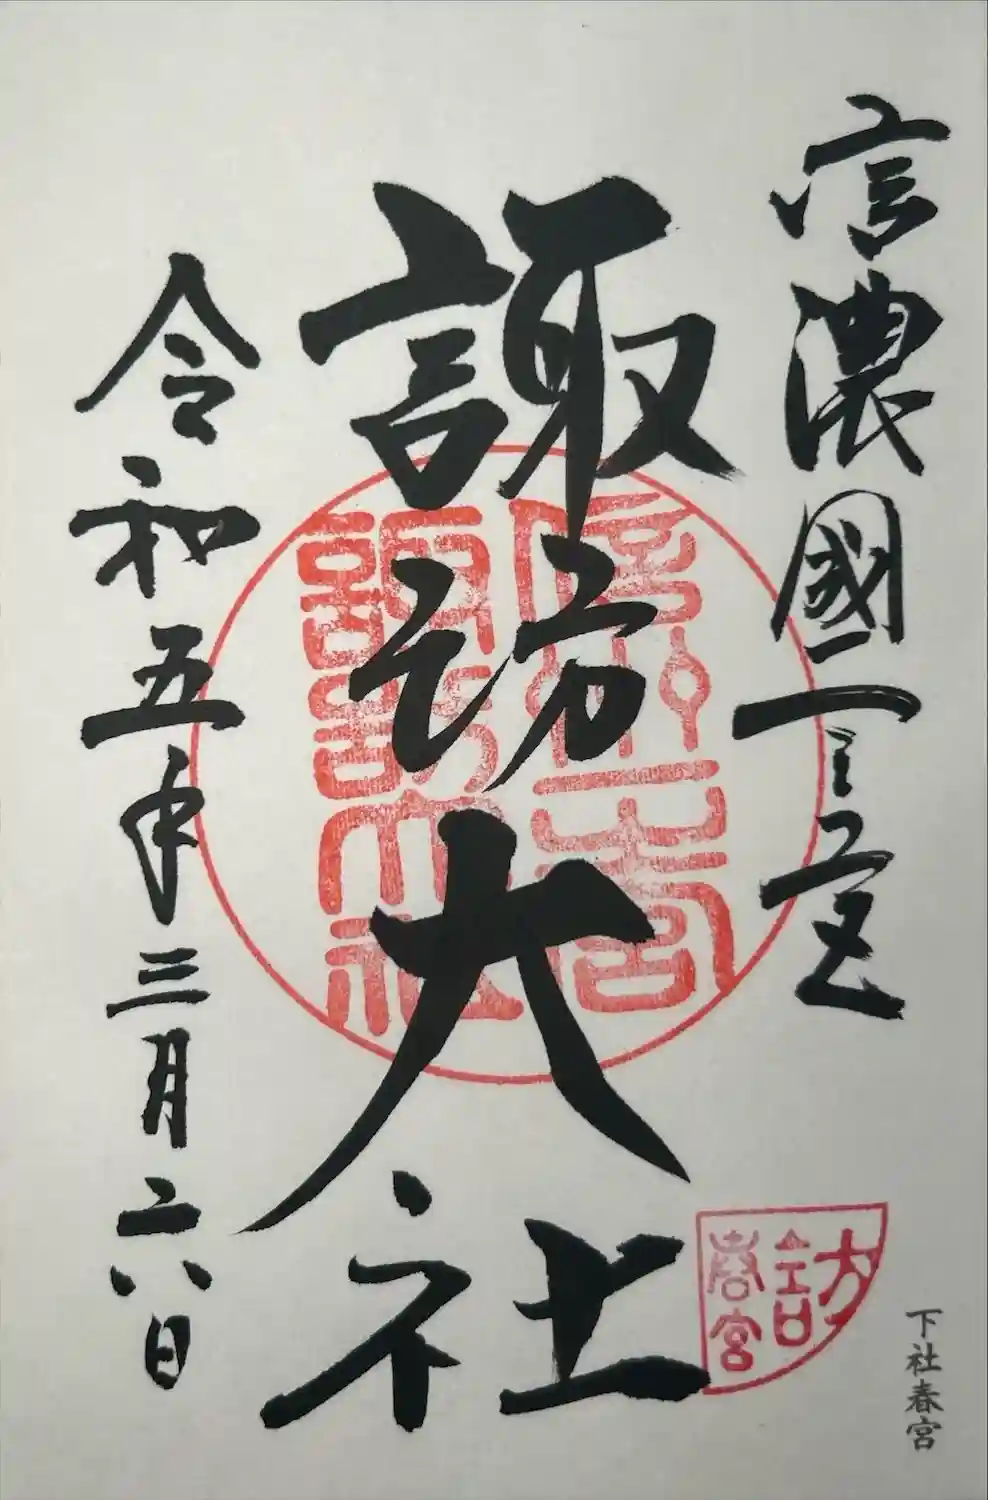 信濃國一之宮
諏訪大社
令和五年三月六日
信州一之宮
諏訪大社
春宮
下社春宮